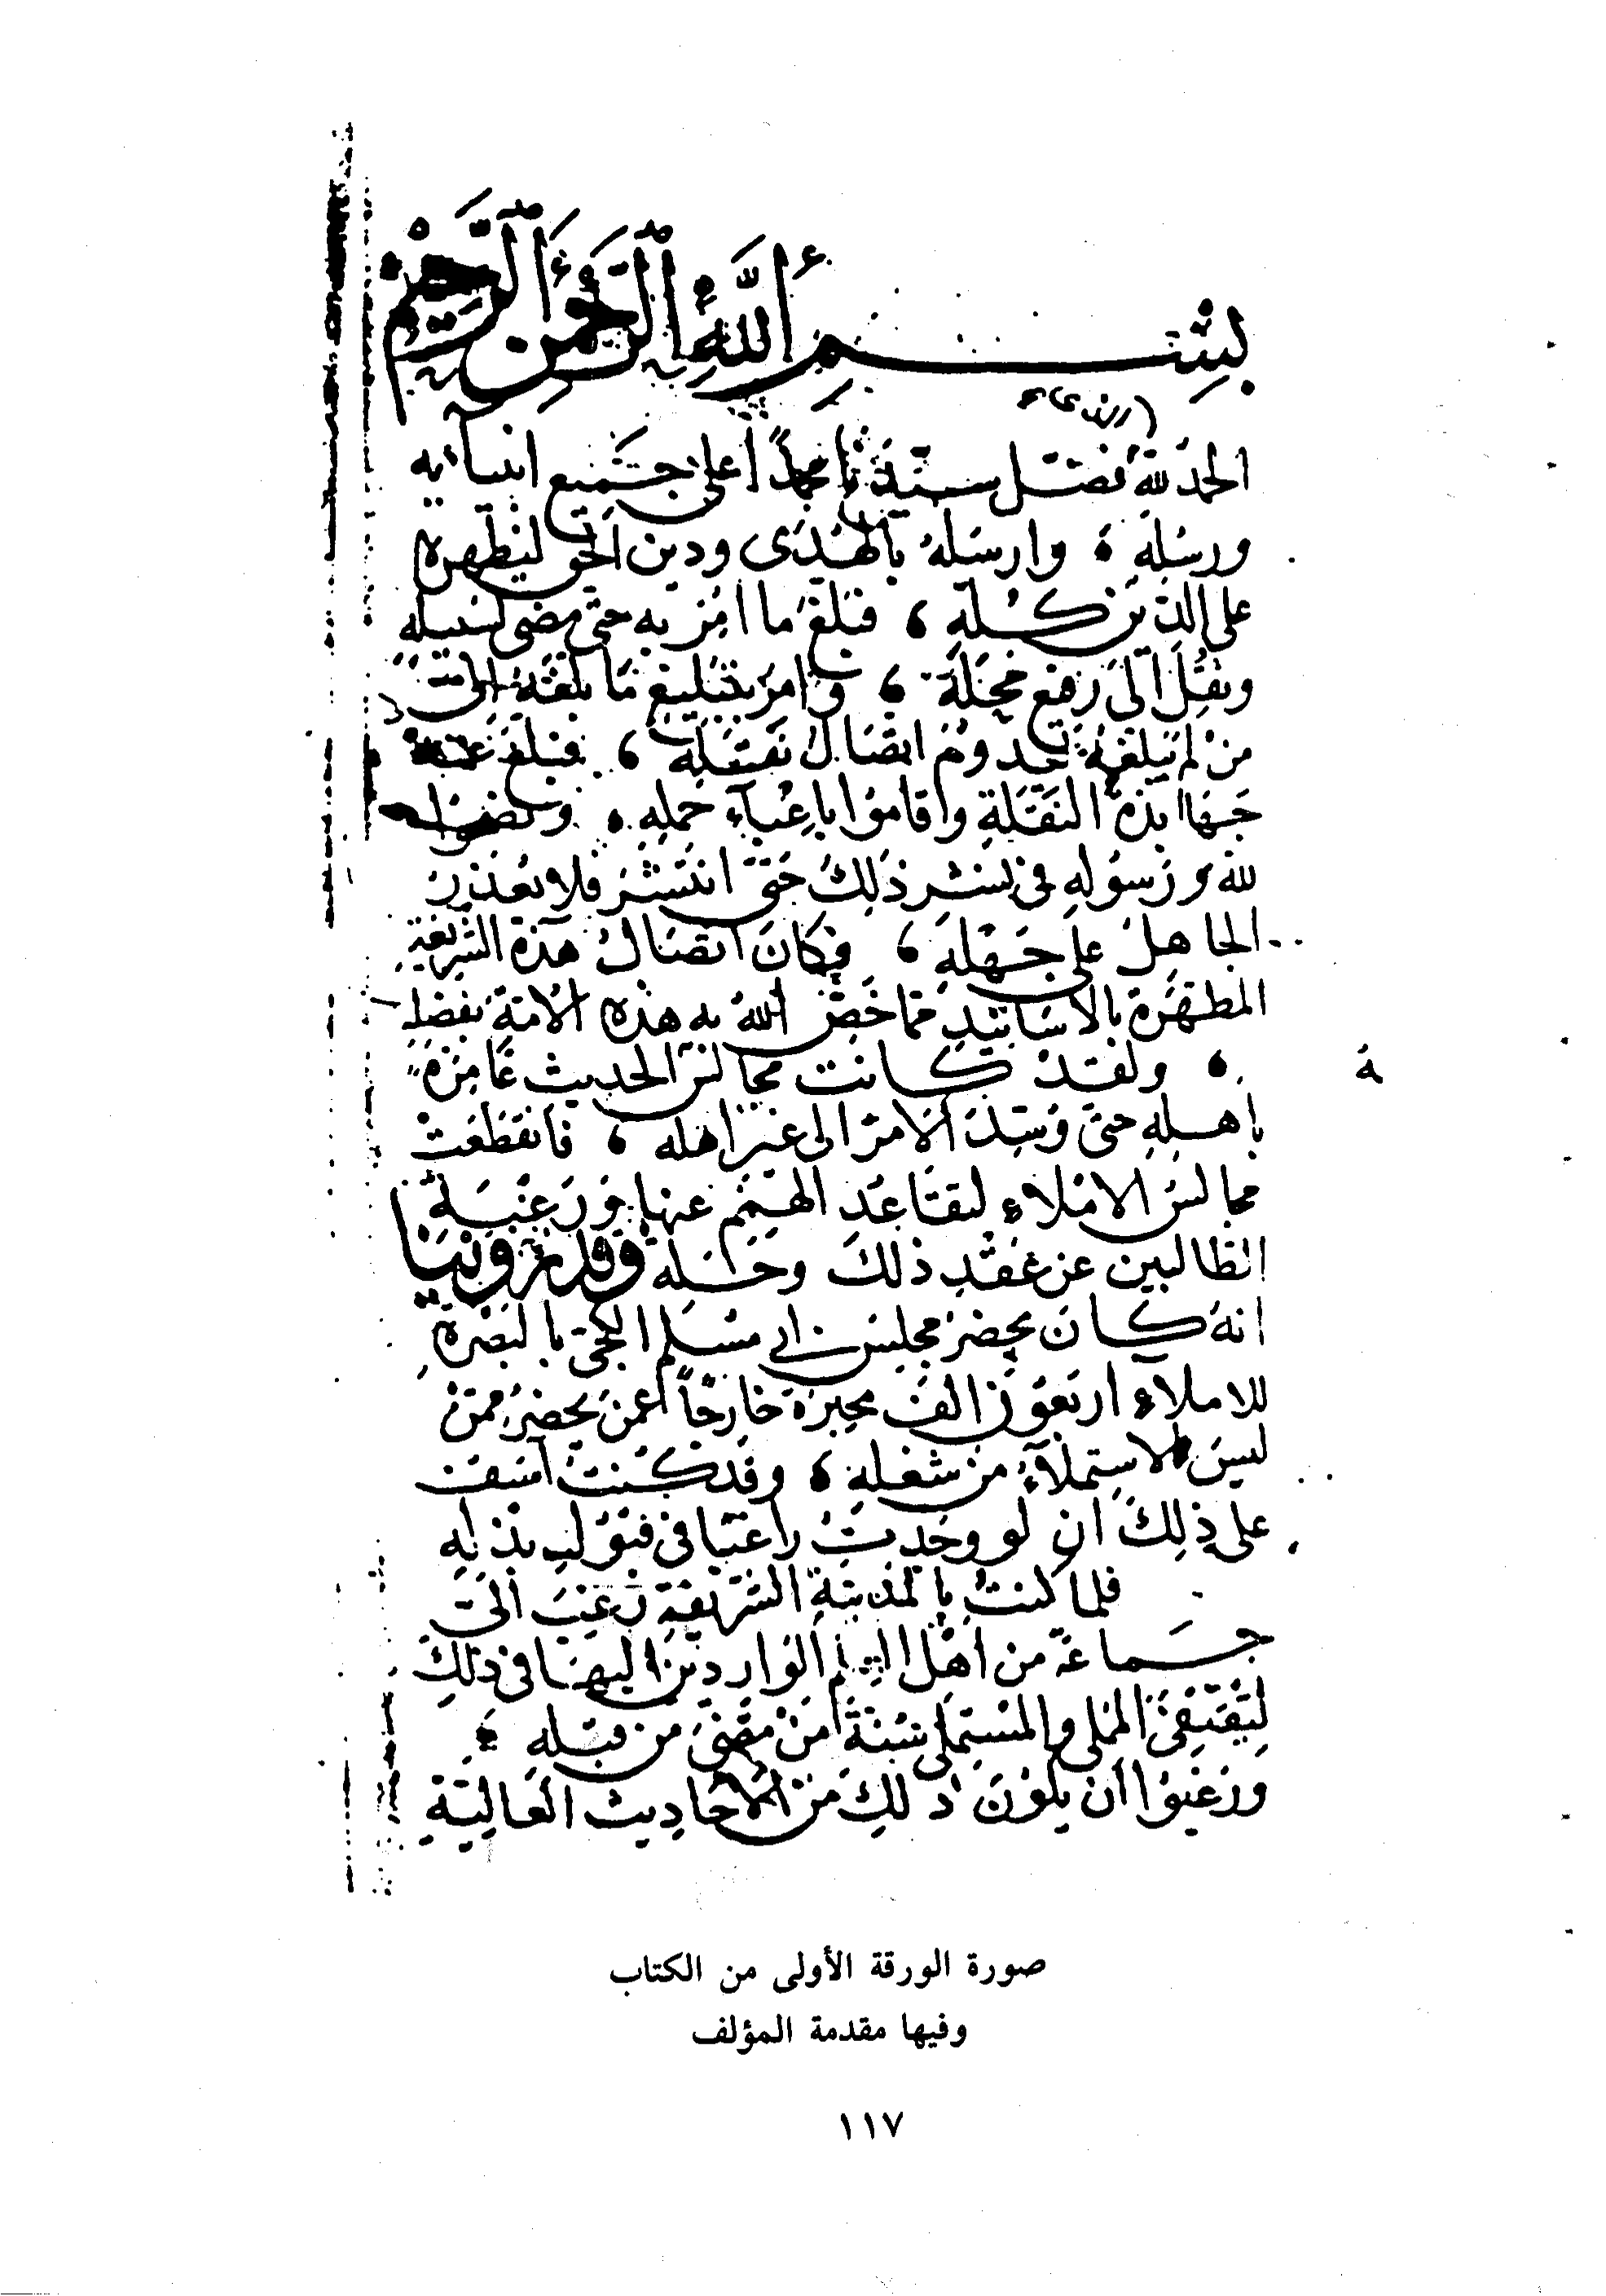 بِسْمِ اللَّهِ الرَّحْمَنِ الرَّحِيمِ
الحمد لله فضل سيدنا محمداً على جميع انبيائه
ورسله ، وارسله بالهدى ودين الحق ليظهره
على الدين كله ، فبلغ ما امر به حتى مضى لسبيله
ونقل الى رفيع محله ، وامر بتبليغ ما بلغه الى
من لم يبلغه ليدوم اتصال نقله ، فبلغ عنه
جهابذة النقلة واقاموا باعباء حمله ، ونصحوا
لله ورسوله في نشر ذلك حتى انتشر فلا يعذر
الجاهل على جهله ، فكان اتصال هذه الشريعة
المطهرة بالاسانيد مما خص الله به هذه الامة بفضله
، ولقد كانت مجالس الحديث عامرة
باهله حتى وسد الامر الى غير اهله ، فانقطعت
مجالس الاملاء لتقاعد الهمم عنها ورغبة
الطالبين عن عقد ذلك وحله وقد روينا
انه كان يحضر مجلس ابي مسلم الكجي بالبصرة
للاملاء اربعون الف محبرة خارجاً عمن يحضر ممن
ليس الاستملاء من شغله ، وقد كنت آسفت
على ذلك ان لو وجدت راغبا في قبول بذله
فلما كنت بالمدينة الشريفة رغب الي
جماعة من اهل العلم الواردين اليها في ذلك
ليقتفي المملي والمستملي سنة من مضى من قبله ،
ورغبوا ان يكون ذلك من الاحاديث العالية
صورة الورقة الأولى من الكتاب
وفيها مقدمة المؤلف
١١٧